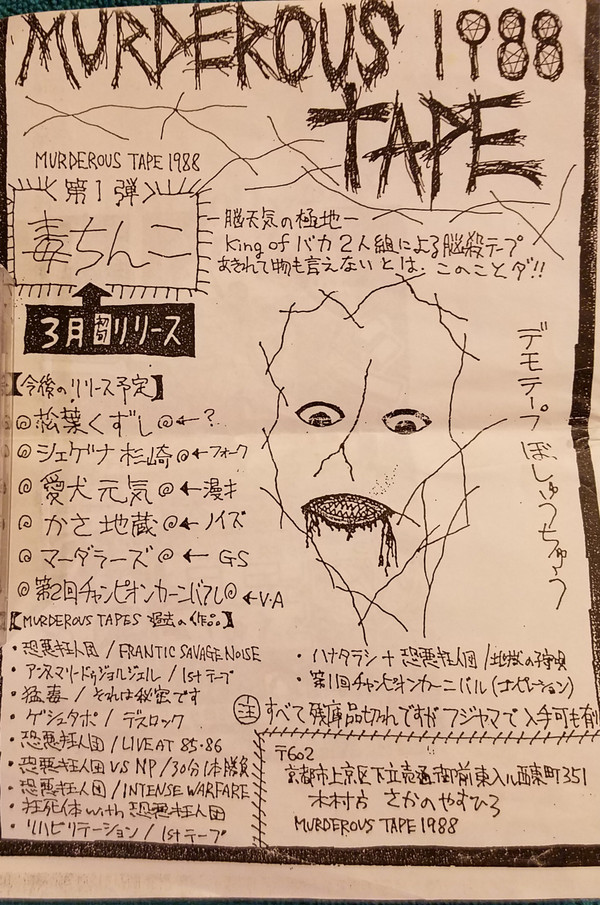 MURDEROUS 1988
TAPE
MURDEROUS TAPE 1988
第1弾
毒ちんこ
3月初旬リリース
―脳天気の極地―
King of バカ2人組による脳殺テープ
あきれて物も言えないとは、このことダ!!
デモテープ ぼしゅうちゅう
【今後のリリース予定】
◎松葉くずし◎←?
◎シェゲナ杉崎◎←フォーク
◎愛犬元気◎←漫才
◎かさ地蔵◎←ノイズ
◎マーダラーズ◎← GS
◎第2回チャンピオンカーニバル◎←V.A
【MURDEROUS TAPES 過去の作品】
・恐悪狂人団 / FRANTIC SAVAGE NOISE
・アンヌマリードゥジョルジェル / 1stテープ
・猛毒 / それは秘密です
・ゲシュタポ / デスロック
・恐悪狂人団 / LIVE AT 85-86
・恐悪狂人団 VS NP / 30分1本勝負
・恐悪狂人団 / INTENSE WARFARE
・狂死体 with 恐悪狂人団
・リハビリテーション / 1stテープ
・ハナタラシ + 恐悪狂人団 / 地獄の
・第1回チャンピオンカーニバル (コンピレーション)
注 すべて残庫品切れですが フジヤマで入手可も有り
〒602
京都市上京区下立売通御前東入ル西東町351
木村方 さかのやすひろ
MURDEROUS TAPE 1988